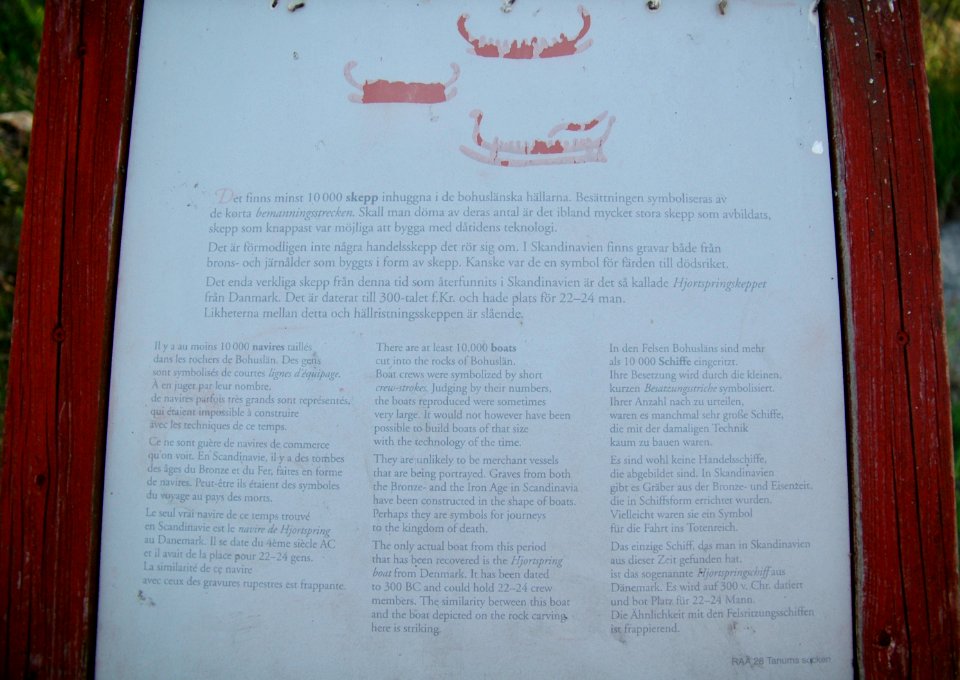 Det finns minst 10 000 skepp inhuggna i de bohuslänska hällarna. Besättningen symboliseras av
de korta bemanningsstrecken. Skall man döma av deras antal är det ibland mycket stora skepp som avbildats,
skepp som knappast var möjliga att bygga med dåtidens teknologi.
Det är förmodligen inte några handelsskepp det rör sig om. I Skandinavien finns gravar både från
brons- och järnålder som byggts i form av skepp. Kanske var de en symbol för färden till dödsriket.
Det enda verkliga skepp från denna tid som återfunnits i Skandinavien är det så kallade Hjortspringskeppet
från Danmark. Det är daterat till 300-talet f.Kr. och hade plats för 22–24 man.
Likheterna mellan detta och hällristningsskeppen är slående.
Il y a au moins 10 000 navires taillés
dans les rochers de Bohuslän. Des gens
sont symbolisés de courtes lignes d'équipage.
À en juger par leur nombre,
de navires parfois très grands sont représentés,
qui étaient impossible à construire
avec les techniques de ce temps.
Ce ne sont guère de navires de commerce
qu'on voit. En Scandinavie, il y a des tombes
des âges du Bronze et du Fer, faites en forme
de navires. Peut-être ils étaient des symboles
du voyage au pays des morts.
Le seul vrai navire de ce temps trouvé
en Scandinavie est le navire de Hjortspring
au Danemark. Il se date du 4ème siècle AC
et il avait de la place pour 22–24 gens.
La similarité de ce navire
avec ceux des gravures rupestres est frappante.
There are at least 10.000 boats
cut into the rocks of Bohuslän.
Boat crews were symbolized by short
crew-strokes. Judging by their numbers,
the boats reproduced were sometimes
very large. It would not however have been
possible to build boats of that size
with the technology of the time.
They are unlikely to be merchant vessels
that are being portrayed. Graves from both
the Bronze- and the Iron Age in Scandinavia
have been constructed in the shape of boats.
Perhaps they are symbols for journeys
to the kingdom of death.
The only actual boat from this period
that has been recovered is the Hjortspring
boat from Denmark. It has been dated
to 300 BC and could hold 22–24 crew
members. The similarity between this boat
and the boat depicted on the rock carving
here is striking.
In den Felsen Bohusläns sind mehr
als 10 000 Schiffe eingeritzt.
Ihre Besetzung wird durch die kleinen,
kurzen Besatzungsstriche symbolisiert.
Ihrer Anzahl nach zu urteilen,
waren es manchmal sehr große Schiffe,
die mit der damaligen Technik
kaum zu bauen waren.
Es sind wohl keine Handelsschiffe,
die abgebildet sind. In Skandinavien
gibt es Gräber aus der Bronze- und Eisenzeit,
die in Schiffsform errichtet wurden.
Vielleicht waren sie ein Symbol
für die Fahrt ins Totenreich.
Das einzige Schiff, das man in Skandinavien
aus dieser Zeit gefunden hat,
ist das sogenannte Hjortspringschiff aus
Dänemark. Es wird auf 300 v. Chr. datiert
und bot Platz für 22–24 Mann.
Die Ähnlichkeit mit den Felsritzungsschiffen
ist frappierend.
RAÄ 28 Tanums socken